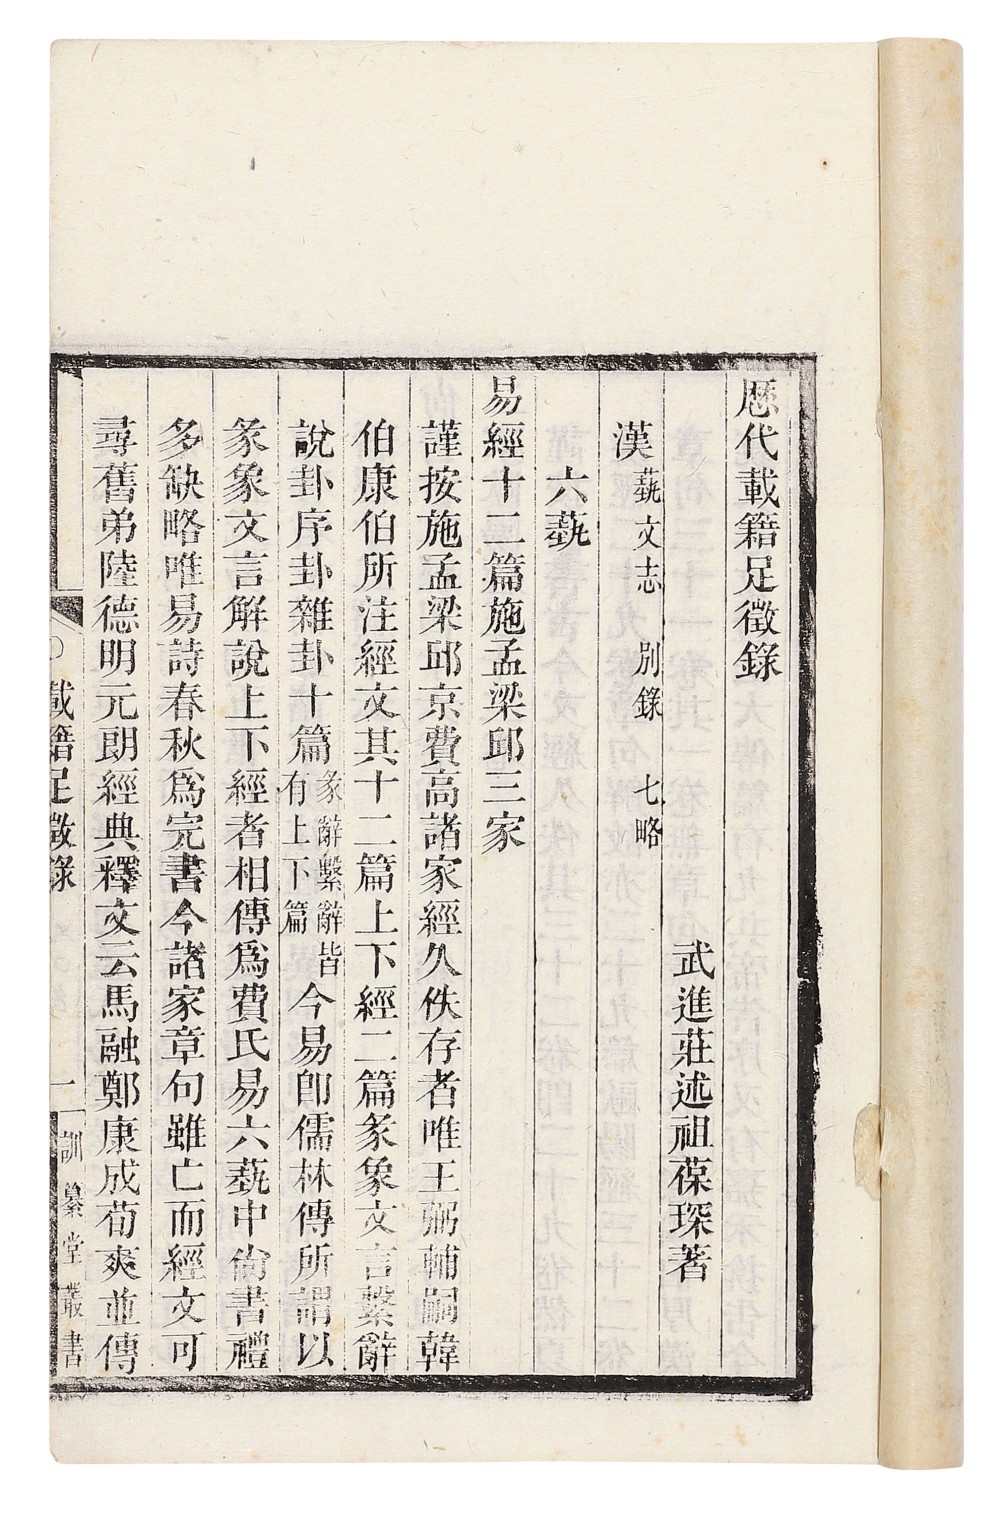 歷代載籍足徵錄
武進莊述祖葆琛著
漢蓺文志　別錄　七略
六蓺
易經十二篇施孟梁邱三家
謹按施孟梁邱京費高諸家經久佚存者唯王弼輔嗣韓
伯康伯所注經文其十二篇上下經二篇彖象文言繫辭
說卦序卦雜卦十篇彖辭繫辭皆有上下篇今易卽儒林傳所謂以
彖象文言解說上下經者相傳爲費氏易六蓺中尙書禮
多缺略唯易詩春秋爲完書今諸家章句雖亡而經文可
尋舊弟陸德明元朗經典釋文云馬融鄭康成荀爽並傳
載籍足徵錄　一　訓纂堂叢書